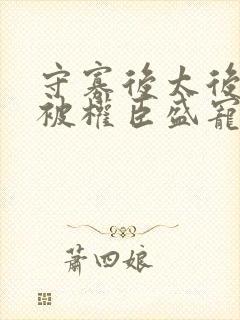 守寡後太後
被權臣盛寵
蕭四娘